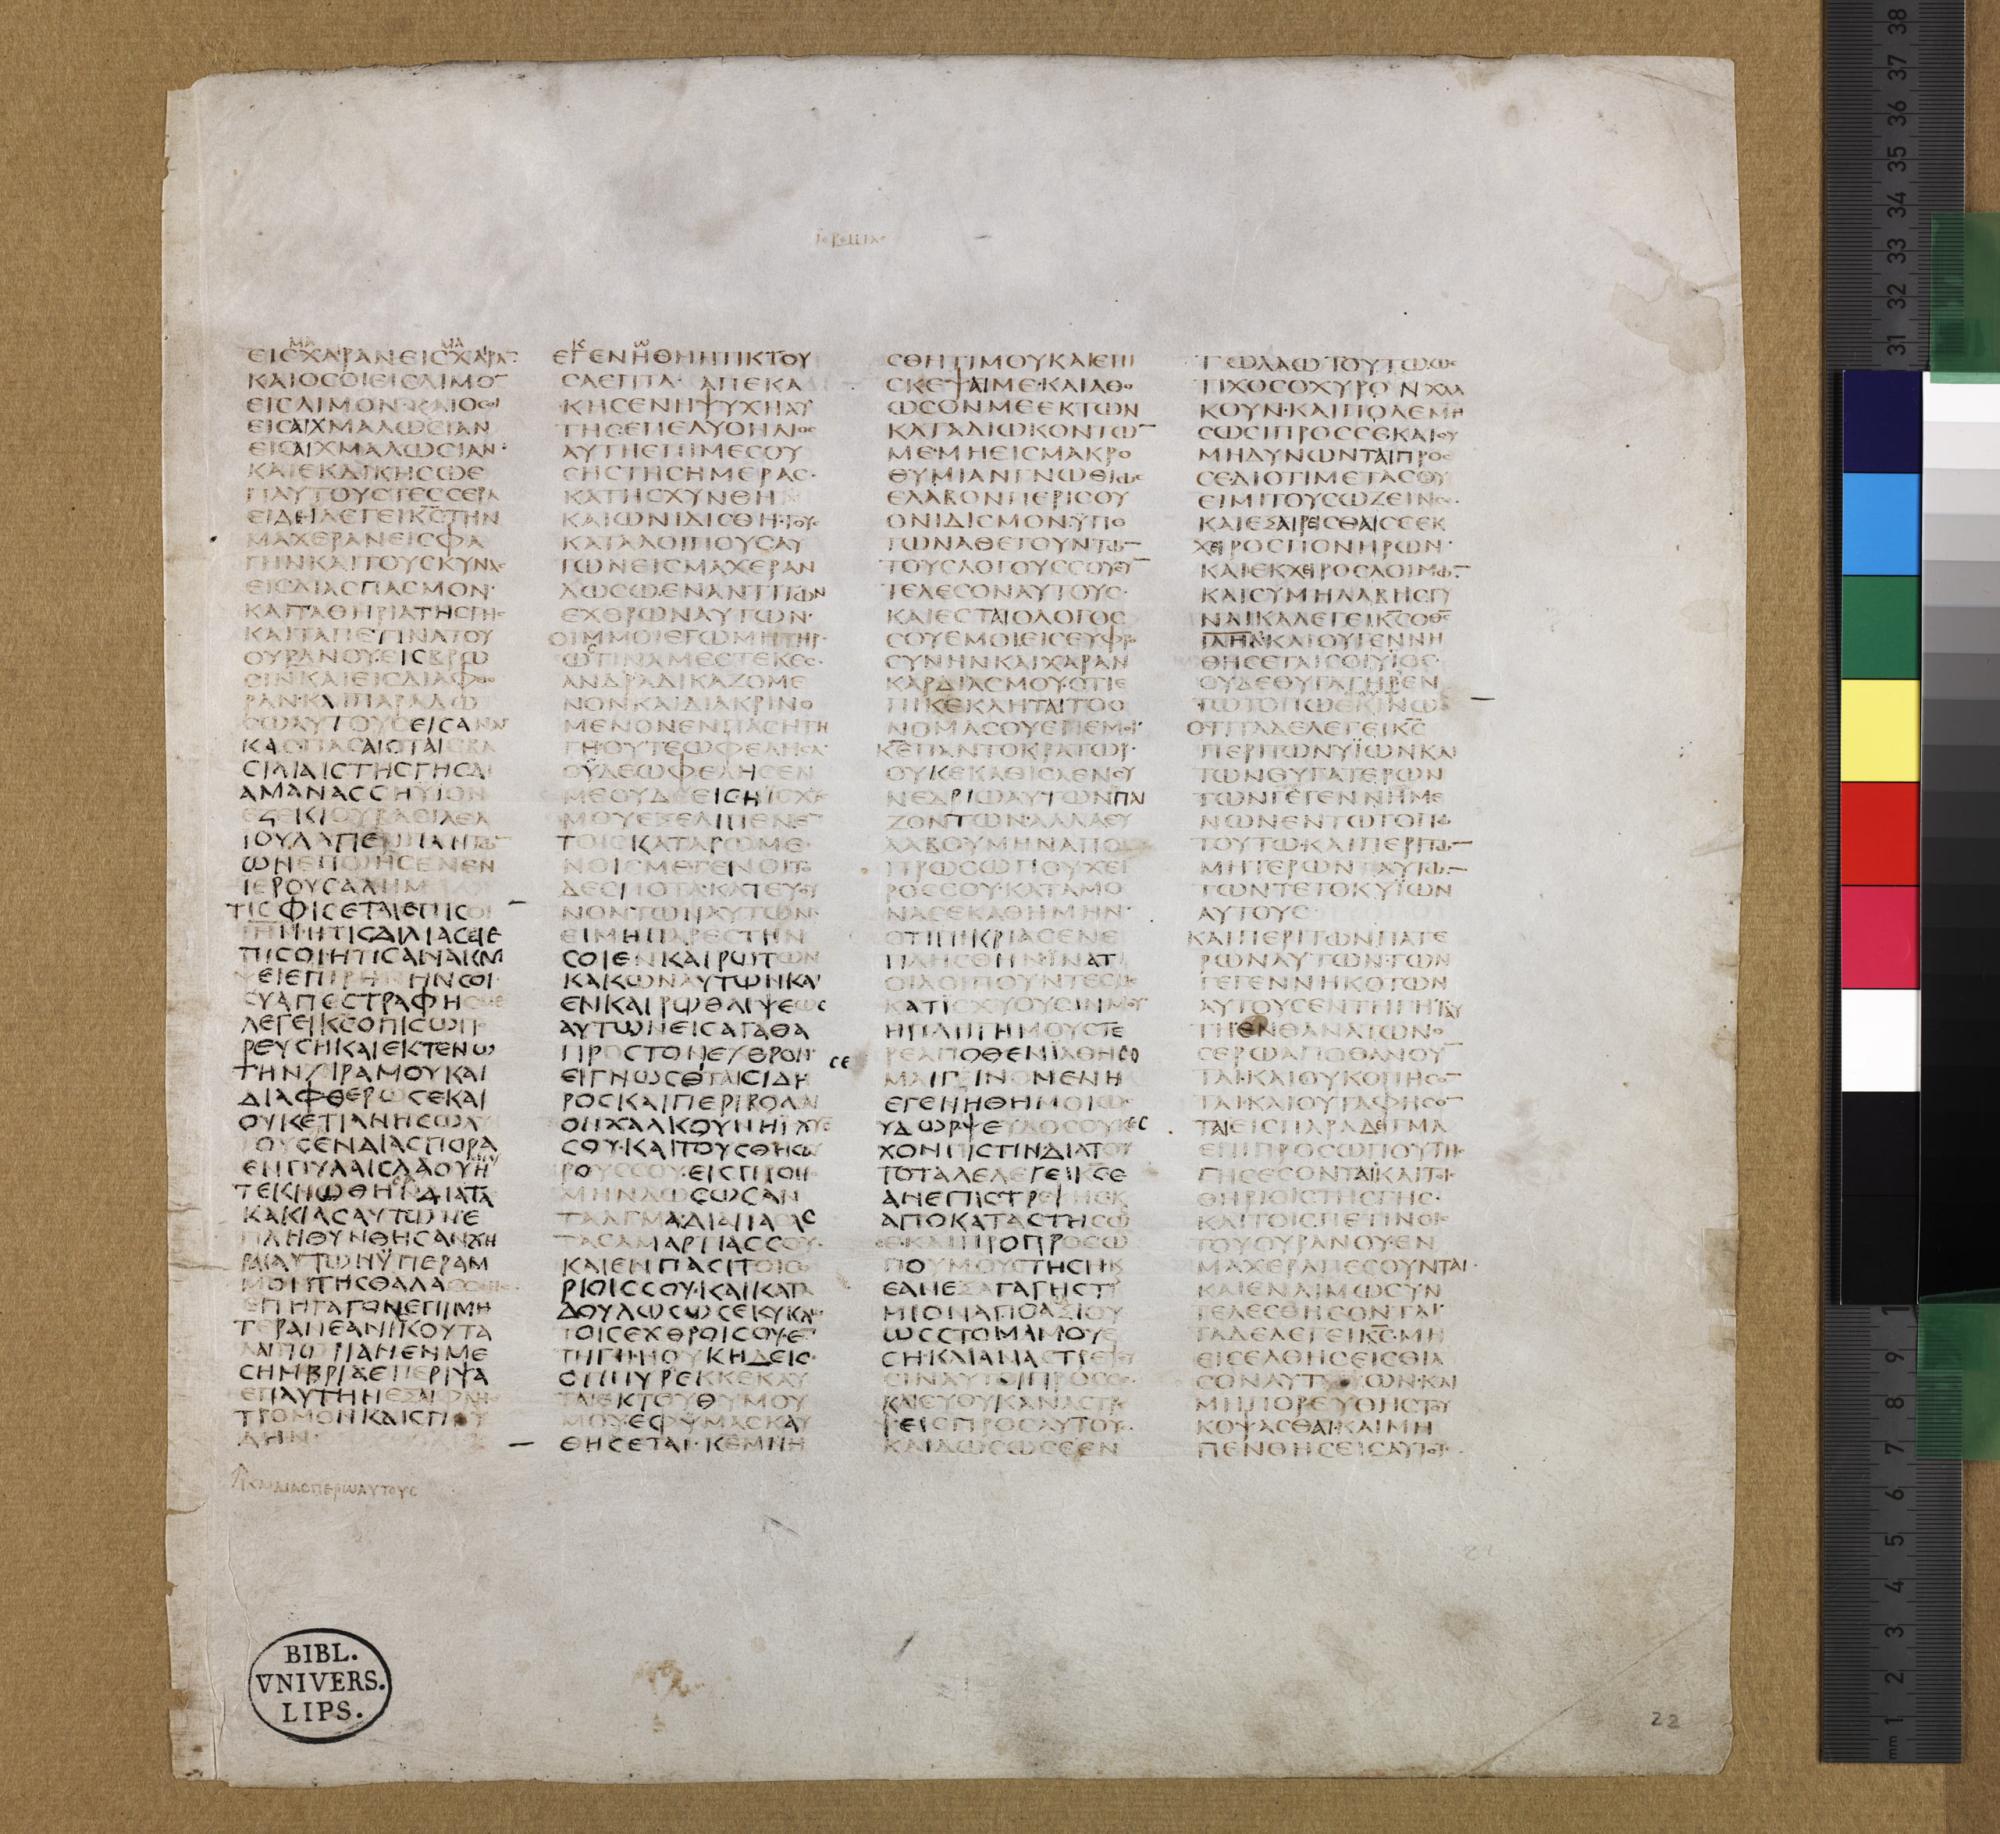 ΕΙϹΧΑΡΑΝΕΙϹΧΑΡΑ
ΚΑΙΟϹΟΙΕΙϹΛΙΜΟ
ΕΙϹΛΙΜΟΝ·ΚΑΙΟϹΟΙ
ΕΙϹΑΙΧΜΑΛΩϹΙΑΝ
ΕΙϹΑΙΧΜΑΛΩϹΙΑΝ·
ΚΑΙΕΚΔΙΚΗϹΩΕ
ΠΑΥΤΟΥϹΤΕϹϹΕΡΑ
ΕΙΔΗΛΕΓΕΙΚ̅Ϲ̅ΤΗΝ
ΜΑΧΕΡΑΝΕΙϹϹΦΑ
ΓΗΝΚΑΙΤΟΥϹΚΥΝΑϹ
ΕΙϹΔΙΑϹΠΑϹΜΟΝ·
ΚΑΙΤΑΘΗΡΙΑΤΗϹΓΗϹ
ΚΑΙΤΑΠΕΤΙΝΑΤΟΥ
ΟΥΡΑΝΟΥΕΙϹΒΡΩ
ϹΙΝΚΑΙΕΙϹΔΙΑΦΘΟ
ΡΑΝ·ΚΑΙΠΑΡΑΔΩ
ϹΩΑΥΤΟΥϹΕΙϹΑΝΑ
ΓΚΑϹΠΑϹΑΙϹΤΑΙϹΒΑ
ϹΙΛΙΑΙϹΤΗϹΓΗϹΔΙ
ΑΜΑΝΑϹϹΗΥΪΟΝ
ΕΖΕΚΙΟΥΒΑϹΙΛΕΑ
ΙΟΥΔΑΠΕΡΙΠΑΝΤΩ
ΩΝΕΠΟΙΗϹΕΝΕΝ
ΙΕΡΟΥϹΑΛΗΜ
ΤΙϹΦΙϹΕΤΑΙΕΠΙϹΟΙ
ΙΗΜ·ΗΤΙϹΔΙΛΙΑϹΕΙΕ
ΠΙϹΟΙ·ΗΤΙϹΑΝΑΚΑΜ
ΨΕΙΕΠΙΡΗΝΗΝϹΟΙ·
ϹΥΑΠΕϹΤΡΑΦΗϹΜΕ
ΛΕΓΕΙΚ̅Ϲ̅ΟΠΙϹΩΠΟ
ΡΕΥϹΗΚΑΙΕΚΤΕΝΩ
ΤΗΝΧΙΡΑΜΟΥΚΑΙ
ΔΙΑΦΘΕΡΩϹΕΚΑΙ
ΟΥΚΕΤΙΑΝΗϹΩΑΥ
ΤΟΥϹΕΝΔΙΑϹΠΟΡΑ
ΕΝΠΥΛΑΙϹΛΑΟΥ
ΤΕΚΝΩΘΗϹΑΝΔΙΑΤΑ
ΚΑΚΙΑϹΑΥΤΩΝΕ
ΠΛΗΘΥΝΘΗϹΑΝΧΗ
ΡΑΙΑΥΤΩΝΫΠΕΡΑΜ
ΜΟΝΤΗϹΘΑΛΑϹϹΗϹ·
ΕΠΗΓΑΓΟΝΕΠΙΜΗ
ΤΕΡΑΝΕΑΝΙϹΚΟΥΤΑ
ΛΑΙΠΩΡΙΑΝΕΝΜΕ
ϹΗΜΒΡΙΑΕΠΕΡΙΨΑ
ΕΠΑΥΤΗΝΕΞΑΙΦΝΗϹ
ΤΡΟΜΟΝΚΑΙϹΠΟΥ
ΔΗΝ
ΕΓΕΝΗΘΗΗΤΙΚΤΟΥ
ϹΑΕΠΤΑ·ΑΠΕΚΑ
ΚΗϹΕΝΗΨΥΧΗΑΥ
ΤΗϹΕΠΕΔΥΟΗΛΙΟϹ
ΑΥΤΗΕΤΙΜΕϹΟΥ
ϹΗϹΤΗϹΗΜΕΡΑϹ·
ΚΑΤΗϹΧΥΝΘΗ
ΚΑΙΩΝΙΔΙϹΘΗ·ΤΟΥϹ
ΚΑΤΑΛΟΙΠΟΥϹΑΥ
ΤΩΝΕΙϹΜΑΧΕΡΑΝ
ΔΩϹΩΕΝΑΝΤΙΤΩΝ
ΕΧΘΡΩΝΑΥΤΩΝ·
ΟΙΜΜΟΙΕΓΩΜΗΤΗΡ·
ΩϹΤΙΝΑΜΕΕΤΕΚΕϹ·
ΑΝΔΡΑΔΙΚΑΖΟΜΕ
ΝΟΝΚΑΙΔΙΑΚΡΙΝΟ
ΜΕΝΟΝΕΝΠΑϹΗΤΗ
ΓΗΟΥΤΕΩΦΕΛΗϹΑ·
ΟΥΔΕΩΦΕΛΗϹΕΝ
ΜΕΟΥΔΕΕΙϹΗΪϹΧΥϹ
ΜΟΥΕΞΕΛΙΠΕΝΕ
ΤΟΙϹΚΑΤΑΡΩΜΕ
ΝΟΙϹΜΕΓΕΝΟΙΤΟ
ΔΕϹΠΟΤΑ·ΚΑΤΕΥΘΥ
ΝΟΝΤΩΝΑΥΤΩΝ·
ΕΙΜΗΠΑΡΕϹΤΗΝ
ϹΟΙΕΝΚΑΙΡΩΤΩΝ
ΚΑΚΩΝΑΥΤΩΝΚΑΙ
ΕΝΚΑΙΡΩΘΛΙΨΕΩϹ
ΑΥΤΩΝΕΙϹΑΓΑΘΑ
ΠΡΟϹΤΟΝΕΧΘΡΟΝ·
ΕΙΓΝΩϹΘΗϹΕΤΑΙϹΙΔΗ
ΡΟϹΚΑΙΠΕΡΙΒΟΛΑΙ
ΟΝΧΑΛΚΟΥΝΗΪϹΧΥϹ
ϹΟΥ·ΚΑΙΤΟΥϹΘΗϹΑΥ
ΡΟΥϹϹΟΥ·ΕΙϹΠΡΟΝ
ΜΗΝΔΩϹΩϹΑΝ
ΤΑΛΓΜΑΔΙΑΠΑϹΑϹ
ΤΑϹΑΜΑΡΤΙΑϹϹΟΥ·
ΚΑΙΕΝΠΑϹΙΤΟΙϹΟ
ΡΙΟΙϹϹΟΥ·ΚΑΙΚΑΤΑ
ΔΟΥΛΩϹΩϹΕΚΥΚΛΩ
ΤΟΙϹΕΧΘΡΟΙϹϹΟΥ·Ε
ΤΗΓΗΗΟΥΚΗΔΕΙϹ·
ΟΤΙΠΥΡΕΚΚΕΚΑΥ
ΤΑΙΕΚΤΟΥΘΥΜΟΥ
ΜΟΥ·ΕΦΥΜΑϹΚΑΥ
ΘΗϹΕΤΑΙ·Κ̅Ε̅ΜΝΗ
ϹΘΗΤΙΜΟΥΚΑΙΕΠΙ
ϹΚΕΨΑΙΜΕ·ΚΑΙΑΘΟ
ΩϹΟΝΜΕΕΚΤΩΝ
ΚΑΤΑΔΙΩΚΟΝΤΩ
ΜΕ·ΜΗΕΙϹΜΑΚΡΟ
ΘΥΜΙΑΝΓΝΩΘΙΩϹ
ΕΛΑΒΟΝΠΕΡΙϹΟΥ
ΟΝΙΔΙϹΜΟΝ·ΫΠΟ
ΤΩΝΑΘΕΤΟΥΝΤΩ
ΤΟΥϹΛΟΓΟΥϹϹΟΥ
ΤΕΛΕϹΟΝΑΥΤΟΥϹ·
ΚΑΙΕϹΤΑΙΟΛΟΓΟϹ
ϹΟΥΕΜΟΙΕΙϹΕΥΦΡΟ
ϹΥΝΗΝΚΑΙΧΑΡΑΝ
ΚΑΡΔΙΑϹΜΟΥ·ΟΤΙΕ
ΠΙΚΕΚΛΗΤΑΙΤΟΟ
ΝΟΜΑϹΟΥΕΠΕΜΟΙ
Κ̅Ε̅ΠΑΝΤΟΚΡΑΤΩΡ·
ΟΥΚΕΚΑΘΙϹΑΕΝϹΥ
ΝΕΔΡΙΩΑΥΤΩΝΠΑΙ
ΖΟΝΤΩΝ·ΑΛΛΑΕΥ
ΛΑΒΟΥΜΗΝΑΠΟ
ΠΡΟϹΩΠΟΥΧΕΙ
ΡΟϹϹΟΥ·ΚΑΤΑΜΟ
ΝΑϹΕΚΑΘΗΜΗΝ·
ΟΤΙΠΙΚΡΙΑϹΕΝΕ
ΠΛΗϹΘΗΝΪΝΑΤΙ
ΟΙΛΟΙΠΟΥΝΤΕϹ
ΚΑΤΙϹΧΥΟΥϹΙΝΜΟΥ
ΗΠΛΗΓΗΜΟΥϹΤΕ
ΡΕΑΠΟΘΕΝΪΑΘΗϹΟ
ΜΑΙΓΕΙΝΟΜΕΝΗ
ΕΓΕΝΗΘΗΜΟΙΩϹ
ΥΔΩΡΨΕΥΔΟϹΟΥΚΕ
ΧΟΝΠΙϹΤΙΝΔΙΑΤΟΥ
ΤΟΤΑΔΕΛΕΓΕΙΚ̅Ϲ̅Ε
ΑΝΕΠΙϹΤΡΕΨΗϹΚ
ΑΠΟΚΑΤΑϹΤΗϹΩ
ϹΕ·ΚΑΙΠΡΟΠΡΟϹΩ
ΠΟΥΜΟΥϹΤΗϹΗΚ
ΕΑΝΕΞΑΓΑΓΗϹΤΙ
ΜΙΟΝΑΠΟΑΞΙΟΥ
ΩϹϹΤΟΜΑΜΟΥΕ
ϹΗ·ΚΑΙΑΝΑϹΤΡΕΨΟΥ
ϹΙΝΑΥΤΟΙΠΡΟϹϹΕ·
ΚΑΙϹΥΟΥΚΑΝΑϹΤΡΕ
ΨΕΙϹΠΡΟϹΑΥΤΟΥϹ·
ΚΑΙΔΩϹΩϹΕΕΝ
ΤΩΛΑΩΤΟΥΤΩΩϹ
ΤΙΧΟϹΟΧΥΡΟΝΧΑΛ
ΚΟΥΝ·ΚΑΙΠΟΛΕΜΗ
ϹΩϹΙΠΡΟϹϹΕΚΑΙΟΥ
ΜΗΔΥΝΩΝΤΑΙΠΡΟϹ
ϹΕΔΙΟΤΙΜΕΤΑϹΟΥ
ΕΙΜΙΤΟΥϹΩΖΕΙΝϹΕ·
ΚΑΙΕΞΑΙΡΕΙϹΘΑΙϹΕΕΚ
ΧΕΙΡΟϹΠΟΝΗΡΩΝ·
ΚΑΙΕΚΧΕΙΡΟϹΛΟΙΜΩ
ΚΑΙϹΥΜΗΛΑΒΗϹΓΥ
ΝΑΙΚΑΛΕΓΕΙΚ̅Ϲ̅ΟΘ̅Ϲ̅
Ι̅Η̅Λ̅·ΚΑΙΟΥΓΕΝΝΗ
ΘΗϹΕΤΑΙϹΟΙΥΪΟϹ·
ΟΥΔΕΘΥΓΑΤΗΡΕΝ
ΤΩΤΟΠΩΕΚΙΝΩ
ΟΤΙΤΑΔΕΛΕΓΕΙΚ̅Ϲ̅
ΠΕΡΙΤΩΝΥΪΩΝΚΑΙ
ΤΩΝΘΥΓΑΤΕΡΩΝ
ΤΩΝΓΕΓΕΝΝΗΜΕ
ΝΩΝΕΝΤΩΤΟΠΩ
ΤΟΥΤΩ·ΚΑΙΠΕΡΙΤΩ
ΜΗΤΕΡΩΝΑΥΤΩ
ΤΩΝΤΕΤΟΚΥΪΩΝ
ΑΥΤΟΥϹ
ΚΑΙΠΕΡΙΤΩΝΠΑΤΕ
ΡΩΝΑΥΤΩΝ·ΤΩΝ
ΓΕΓΕΝΝΗΚΟΤΩΝ
ΑΥΤΟΥϹΕΝΤΗΓΗΤΑΥ
ΤΗΕΝΘΑΝΑΤΩΝΟ
ϹΕΡΩΑΠΟΘΑΝΟΥ
ΤΑΙ·ΚΑΙΟΥΚΟΠΗϹΟ
ΤΑΙ·ΚΑΙΟΥΤΑΦΗϹΟ
ΤΑΙΕΙϹΠΑΡΑΔΕΙΓΜΑ
ΕΠΙΠΡΟϹΩΠΟΥΤΗϹ
ΓΗϹΕϹΟΝΤΑΙΚΑΙΤΟΙϹ
ΘΗΡΙΟΙϹΤΗϹΓΗϹ·
ΚΑΙΤΟΙϹΠΕΤΙΝΟΙϹ
ΤΟΥΟΥΡΑΝΟΥ·ΕΝ
ΜΑΧΕΡΑΠΕϹΟΥΝΤΑΙ·
ΚΑΙΕΝΛΙΜΩϹΥΝ
ΤΕΛΕϹΘΗϹΟΝΤΑΙ·
ΤΑΔΕΛΕΓΕΙΚ̅Ϲ̅·ΜΗ
ΕΙϹΕΛΘΗϹΕΙϹΘΙΑ
ϹΟΝΑΥΤΩΝ·ΚΑΙ
ΜΗΠΟΡΕΥΘΗϹΤΟΥ
ΚΟΨΑϹΘΑΙ·ΚΑΙΜΗ
ΠΕΝΘΗϹΕΙϹΑΥΤΟΥϹ·
ΚΑΡΔΙΑϹΠΕΡΙΑΥΤΟΥϹ
BIBL.
VNIVERS.
LIPS.
22